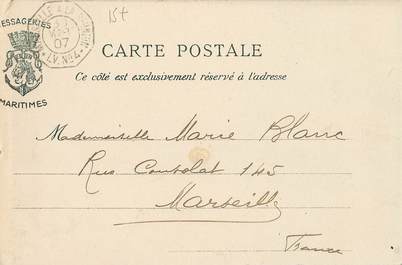 15t
MESSAGERIES
MARITIMES
07
L.V. Nº4
CARTE POSTALE
Ce côté est exclusivement réservé à l'adresse
Mademoiselle Marie Blanc
Rue Consolat 145
Marseille
France